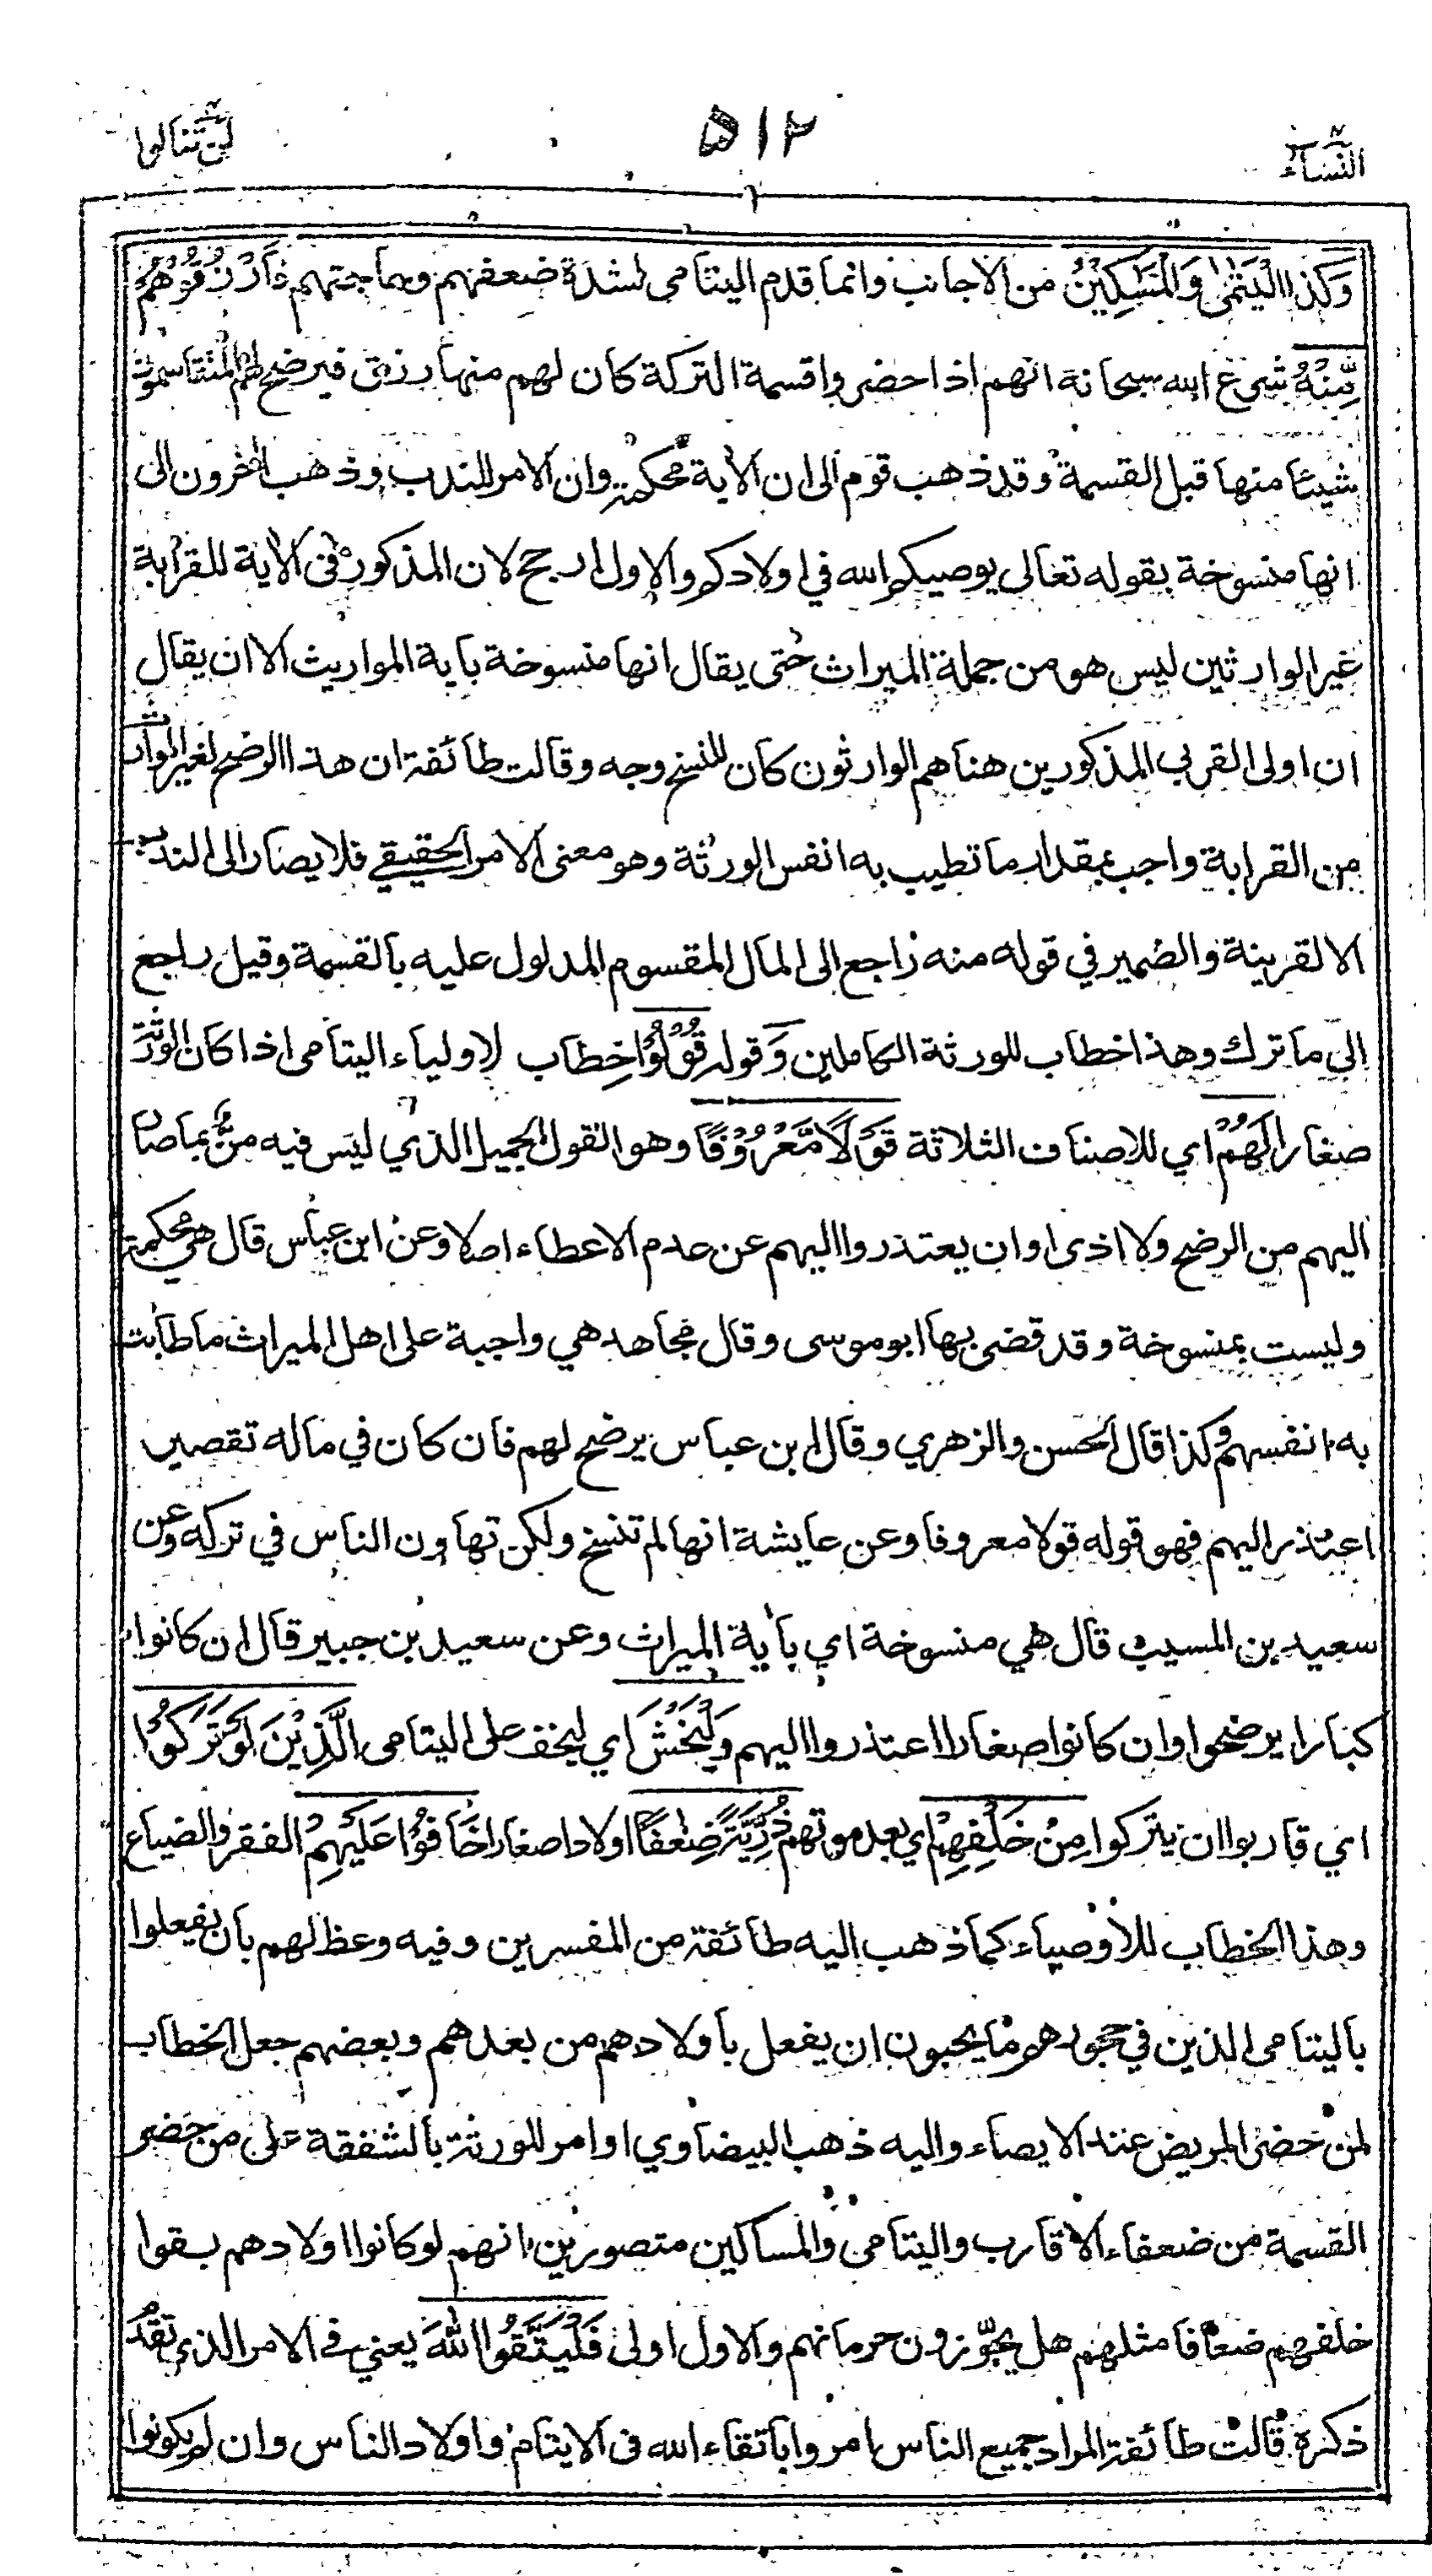 النساء
٥١٢
لن تنالوا
وَكذا الْيَتٰمٰى وَالْمَسٰكِيْنُ من الاجانب وانما قدم اليتامى لشدة ضعفهم وحاجتهم فَارْزُقُوْهُمْ
مِّنْهُ شرع الله سبحانه انهم اذا حضروا قسمة التركة كان لهم منها رزق فيرضخ لهم المتقاسمون
شيئا منها قبل القسمة وقد ذهب قوم الى ان الاية محكمة وان الامر للندب وذهب اخرون الى
انها منسوخة بقوله تعالى يوصيكم الله في اولادكم والاول ارجح لان المذكور في الاية للقرابة
غير الوارثين ليس هو من جملة الميراث حتى يقال انها منسوخة باية المواريث الا ان يقال
ان اولى القربى المذكورين هنا هم الوارثون كان للنسخ وجه وقالت طائفة ان هذا الرضخ لغير الوارث
من القرابة واجب بمقدار ما تطيب به انفس الورثة وهو معنى الامر الحقيقي فلا يصار الى الندب
الا لقرينة والضمير في قوله منه راجع الى المال المقسوم المدلول عليه بالقسمة وقيل راجع
الى ما ترك وهذا خطاب للورثة الكاملين وَقوله قُوْلُوْا خِطاب لاولياء اليتامى اذا كان الورثة
صغارا لَهُمْ اي للاصناف الثلاثة قَوْلًا مَّعْرُوْفًا وهو القول الجميل الذي ليس فيه منّ بما صار
اليهم من الرضخ ولا اذى او ان يعتذروا اليهم عن عدم الاعطاء اصلا وعن ابن عباس قال هي محكمة
وليست بمنسوخة وقد قضى بها ابو موسى وقال مجاهد هي واجبة على اهل الميراث ما طابت
به انفسهم وكذا قال الحسن والزهري وقال ابن عباس يرضخ لهم فان كان في ماله تقصير
اعتذر اليهم فهو قوله قولا معروفا وعن عايشة انها لم تنسخ ولكن تهاون الناس في تركه وعن
سعيد بن المسيب قال هي منسوخة اي باية الميراث وعن سعيد بن جبير قال ان كانوا
كبارا يرضخوا وان كانوا صغارا اعتذروا اليهم وَلْيَخْشَ اي ليخف على اليتامى الَّذِيْنَ لَوْ تَرَكُوْا
اي قاربوا ان يتركوا مِنْ خَلْفِهِمْ اي بعد موتهم ذُرِّيَّةً ضِعٰفًا اولادا صغارا خَافُوْا عَلَيْهِمْ الفقر والضياع
وهذا الخطاب للاوصياء كما ذهب اليه طائفة من المفسرين وفيه وعظ لهم بان يفعلوا
باليتامى الذين في حجورهم ما يحبون ان يفعل باولادهم من بعدهم وبعضهم جعل الخطاب
لمن حضر المريض عند الايصاء واليه ذهب البيضاوي او امر للورثة بالشفقة على من حضر
القسمة من ضعفاء الاقارب واليتامى والمساكين متصورين انهم لو كانوا اولادهم بقوا
خلفهم ضعافا مثلهم هل يجوّزون حرمانهم والاول اولى فَلْيَتَّقُوا اللهَ يعني في الامر الذي تقدم
ذكره قالت طائفة المراد جميع الناس امروا باتقاء الله في الايتام واولاد الناس وان لم يكونوا